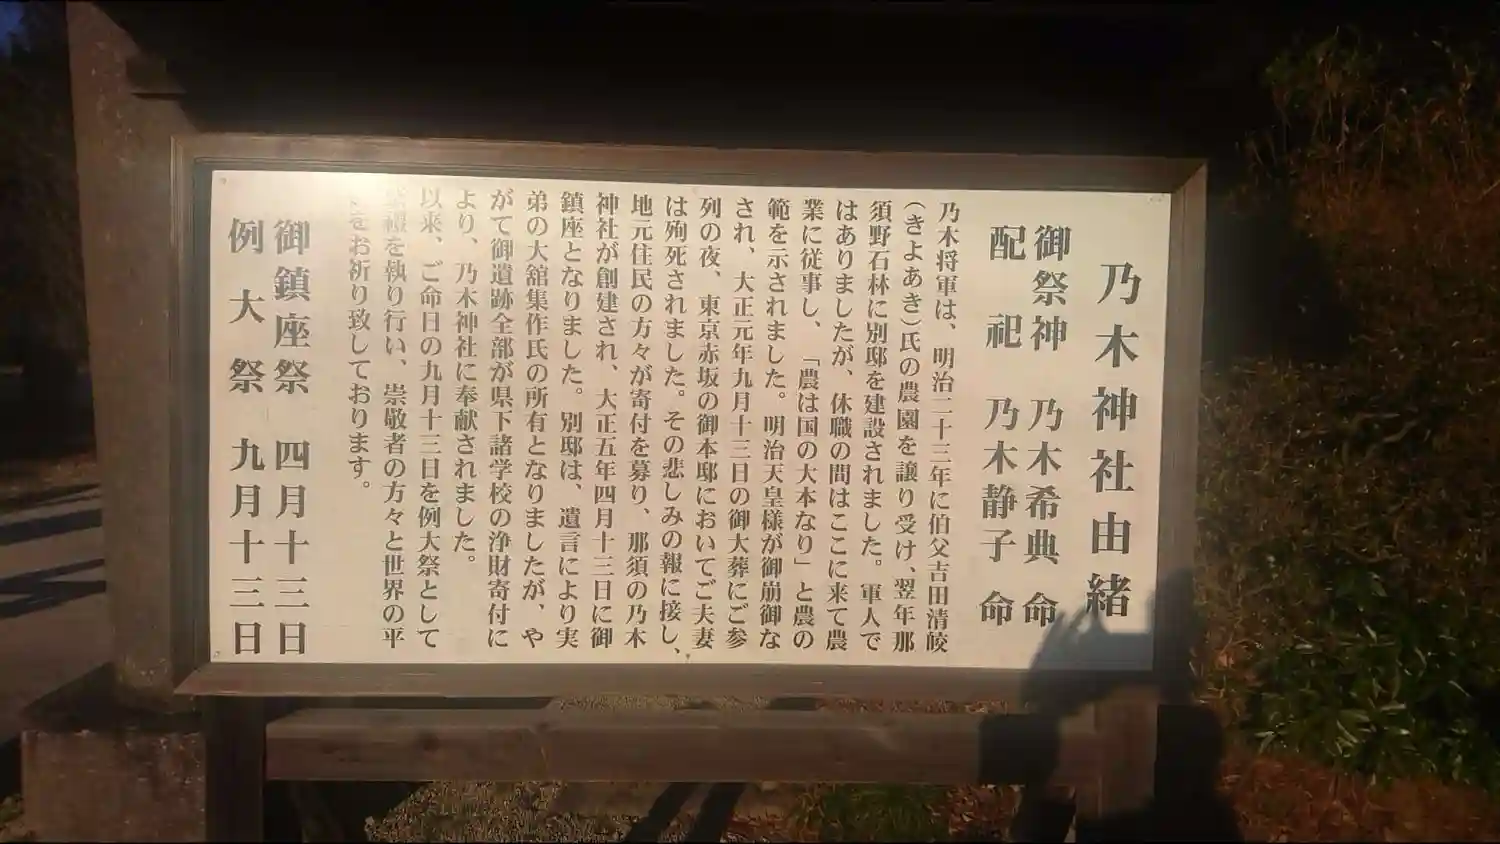 乃木神社由緒
御祭神 乃木希典 命
配祀 乃木静子 命
乃木将軍は、明治二十三年に伯父吉田清皎
(きよあき)氏の農園を譲り受け、翌年那
須野石林に別邸を建設されました。軍人で
はありましたが、休職の間はここに来て農
業に従事し、「農は国の大本なり」と農の
範を示されました。明治天皇様が御崩御な
され、大正元年九月十三日の御大葬にご参
列の夜、東京赤坂の御本邸においてご夫妻
は殉死されました。その悲しみの報に接し、
地元住民の方々が寄付を募り、那須の乃木
神社が創建され、大正五年四月十三日に御
鎮座となりました。別邸は、遺言により実
弟の大舘集作氏の所有となりましたが、や
がて御遺跡全部が県下諸学校の浄財寄付に
より、乃木神社に奉献されました。
以来、ご命日の九月十三日を例大祭として
を執り行い、崇敬者の方々と世界の平
をお祈り致しております。
御鎮座祭 四月十三日
例大祭 九月十三日